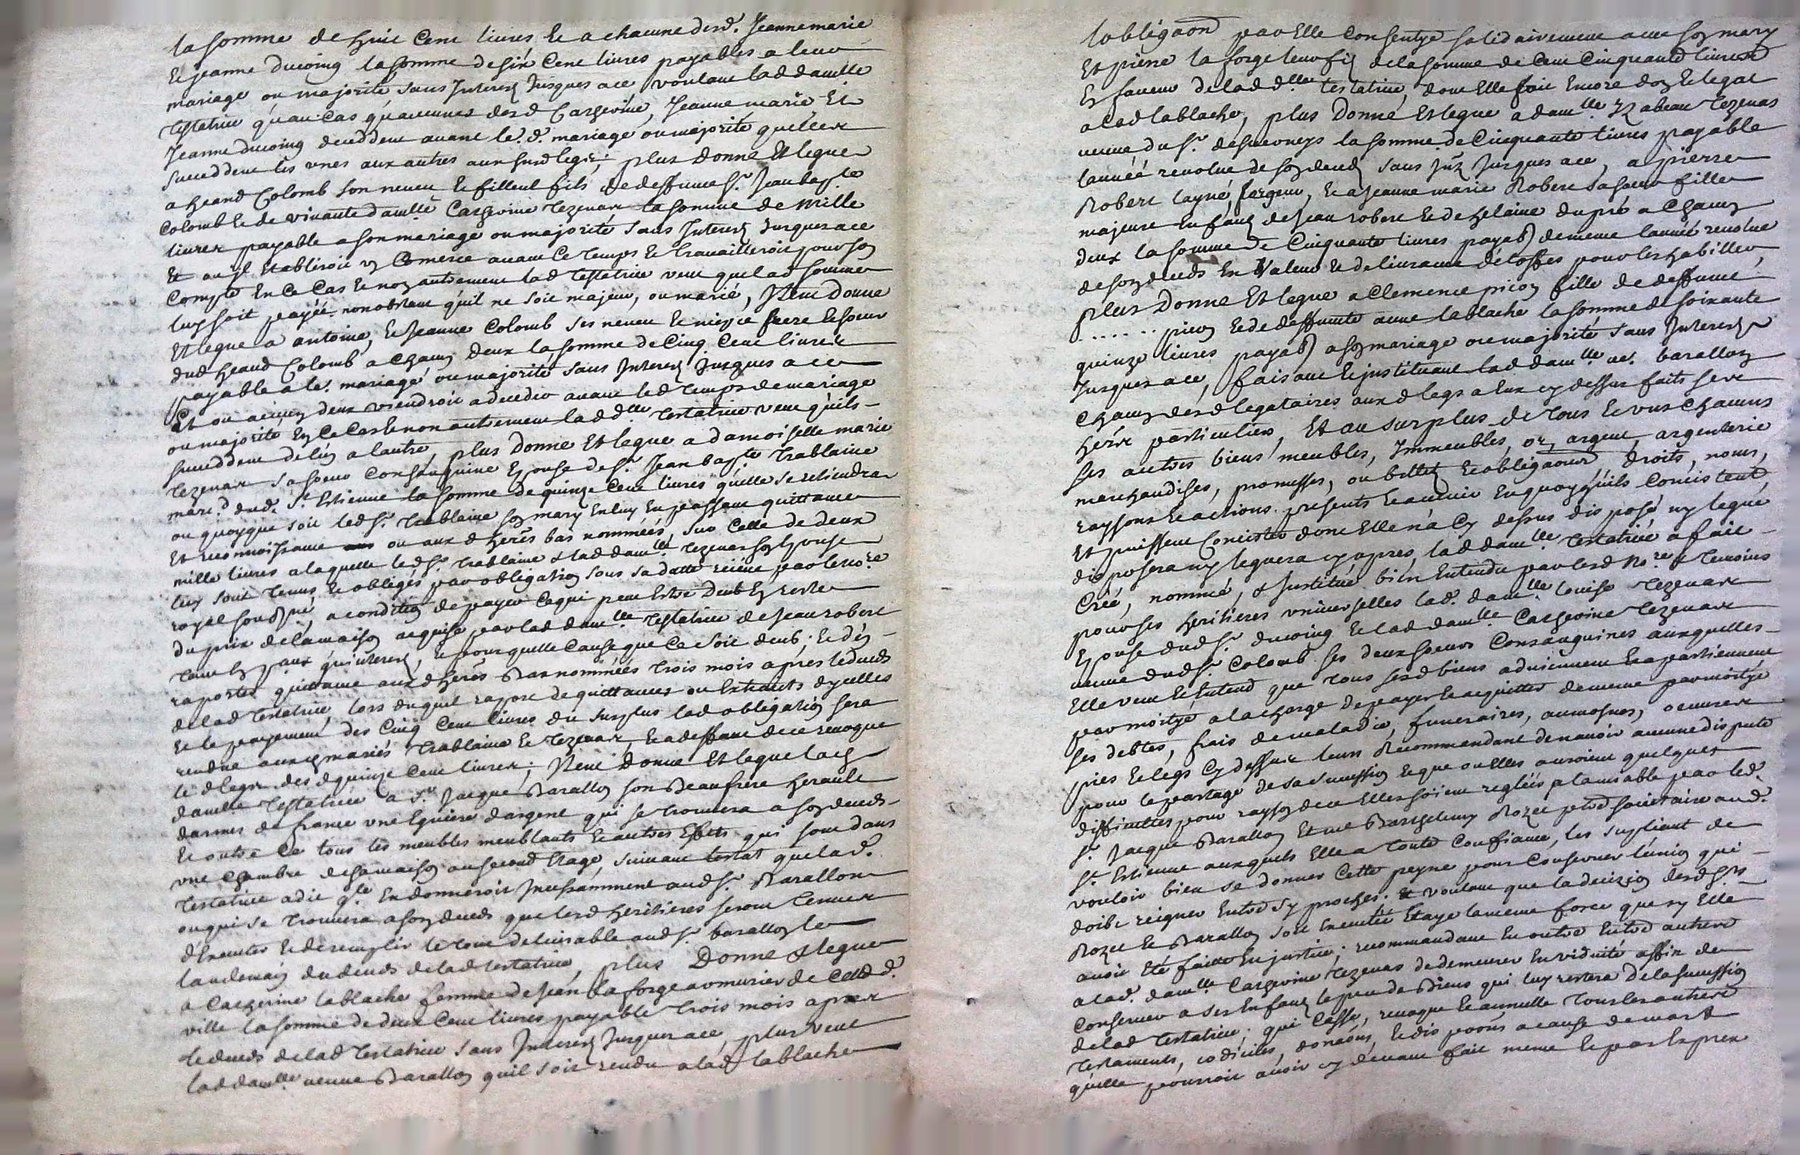 la somme de huit Cent livres Et a chacune desd. Jeanne marie
Et Jeanne ducoing la somme de six Cent livres payables a leur
mariage ou majorité sans Interest Jusques a ce voulant lad damlle
testatrice qu'au Cas qu'aucunes desd Catherine, Jeanne marie Et
Jeanne ducoing deceddent avant le d. mariage ou majorité quelles
succeddent les unes aux autres aux susd legs; plus Donne Et legue
a heand Colomb son neveu Et filleul fils de deffunt Sr. Jean bapte
Colomb Et de vivante damlle Catherine tezenas la somme de mille
livres payable a son mariage ou majorité sans Interest Jusques a ce
Et ou il Etabliroit un Comerce avant Ce temps Et travailleroit pour son
Compte En Ce Cas Et non autrement lad testatrice veut que lad somme
luy soit payée nonobstant qu'il ne soit majeur, ou marié, Item donne
Et legue a antoine, Et Jeanne Colomb ses neveu Et niepce frere Et soeur
dud heand Colomb a Chacun deux la somme de Cinq Cent livres
payable a les. mariage ou majorité sans Interest Jusques a ce
Et ou aucun deux viendroit a deceder avant led temps de mariage
ou majorité En Ce Cas Et non autrement lad dlle testatrice veut quils
succeddent de lun a lautre, plus Donne Et legue a damoiselle marie
tezenas sa soeur Consanguine Epouse de Sr. Jean bapte trablaine
marc.d dud. St Etienne la somme de quinze Cent livres quelle se retiendra
ou quoyque soit led Sr. trablaine son mary En luy En passant quittance
Et reconnoissance ou aux d heres bas nommées, sur Celle de deux
mille livres a laquelle led Sr. trablaine & lad damlle tezenas son Epouse
luy sont tenus Et obligés par obligation sous sa datte receue par le nore
royal soussné, a condition de payer Ce qui peut Estre deub En reste
du prix de la maison acquise par lad damlle testatrice de Jean robert
tant En qu'interest, & pour quelle Cause que Ce soit deub; Et d'en
raporter quittance aux d heres bas nommées trois mois apres le deces
de lad testatrice, lors duquel raport de quittances ou Extraits dycelles
Et le payement des Cinq Cent livres du surplus lad obligation sera
rendue aux mariés trablaine Et tezenas, Et a deffaut de ce revoque
le d legs des d quinze Cent livres; Item Donne Et legue lad
damlle testatrice a Sr. Jacque Barallon son Beaufrere herault
darmes de france une Eguiere d'argent qui se trouvera a son deces
Et outre Ce tous les meubles meublants Et autres Effets qui sont dans
une Chambre de sa maison au second Etage, suivant lestat que lad.
testatrice a dit qlle En donneroit Incessamment aud Sr. Barallon
ou qui se trouvera a son deces que lesd heritieres seront tenues
d'Executer Et de remplir le tout delivrable aud Sr. barallon le
landemain du deces de lad testatrice, plus Donne & legue
a Catherine lablache femme de Jean la forge armurier de Cette d.
ville la somme de deux Cent livres payable trois mois apres
le deces de lad testatrice sans Interest Jusques a ce, plus veut
lad damlle veuve Barallon quil soit rendu a lad lablache
lobligaon par Elle Consentye solidairement avec son mary
Et pierre la forge leur fils de la somme de Cent Cinquante livres
En faveur de lad dlle testatrice, dont Elle fait Encore don Et legat
a lad lablache, plus Donne Et legue a damlle Izabeau tezenas
veuve du Sr. desverneys la somme de Cinquante livres payable
lannéé revolue de son deces sans Jnt Jusques a ce, a pierre
Robert layné, forgeur, Et a Jeanne marie Robert sa soeur fille
majeure Enfans de Jean robert Et de helaine dupré a Chacun
deux la somme de Cinquante livres payable de meme lannée revolue
de son deces En Valeur Et delivrance détoffes pour les habiller,
plus Donne Et legue a Clemence picon fille de deffunt
...... picon Et de deffunte anne lablache la somme de soixante
quinze livres payable a son mariage ou majorité sans Interest
Jusques a ce, faisant Et Jnstituant lad damlle ve. barallon
Chacun desd legataires aux d legs a Eux cy dessus faits ses
heres particuliers, Et au surplus de tous Et uns Chacuns
ses autres biens meubles, Immeubles, or, argent, argenterie
marchandises, promesses, ou billets Et obligaons droits, noms,
raysons Et actions presents Et avenir En quoy quils Concistent,
Et puissent Concister dont Elle n'a Cy dessus disposé ny legué
disposera ny leguera cy apres, lad damlle testatrice a fait
Créé, nommé, & Jnstitué bien Entendu par led Nore. & temoins
pour ses heritieres universelles lad. damlle louise tezenas
Epouse dud Sr. ducoing Et lad damlle Catherine tezenas
veuve dud Sr. Colomb ses deux soeurs Consanguines auxquelles
Elle veut Et Entend que tous sesd biens adviennent Et apartiennent
par moitye a la charge de payer Et acquitter de meme par moityé
ses debtes, frais de maladie, funeraires, aumosnes, oeuvres
pies Et legs Cy dessus leurs Recommandant de n'avoir aucune dispute
pour le partage de sa succession Et que ou Elles auroient quelques
difficultes pour rayson de ce Elles soient reglées a lamiable par led.
Sr. Jacque Barallon Et me Barthelemy Rozet pbre societaire aud.
St. Etienne auxquels Elle a toute Confiance, les supliant de
vouloir bien se donner Cette peyne pour Conserver lunion qui
doibt reigner Entre sy proches. & voulant que la decision desd Srs
Rozet Et Barallon soit Executée Et aye la meme force que sy Elle
avoit Eté faitte En justice; recommandant En outre Entre autres
a lad. damlle Catherine tezenas de demeurer En viduité affin de
Conserver a ses Enfans le peu de Biens qui luy restera de la succession
de lad testatrice. qui Casse, revoque Et annulle tous les autres
testaments, codiciles, donaons, Et dis poons a cause de mort
quelle pourroit avoir cy devant fait meme Et par Exprex